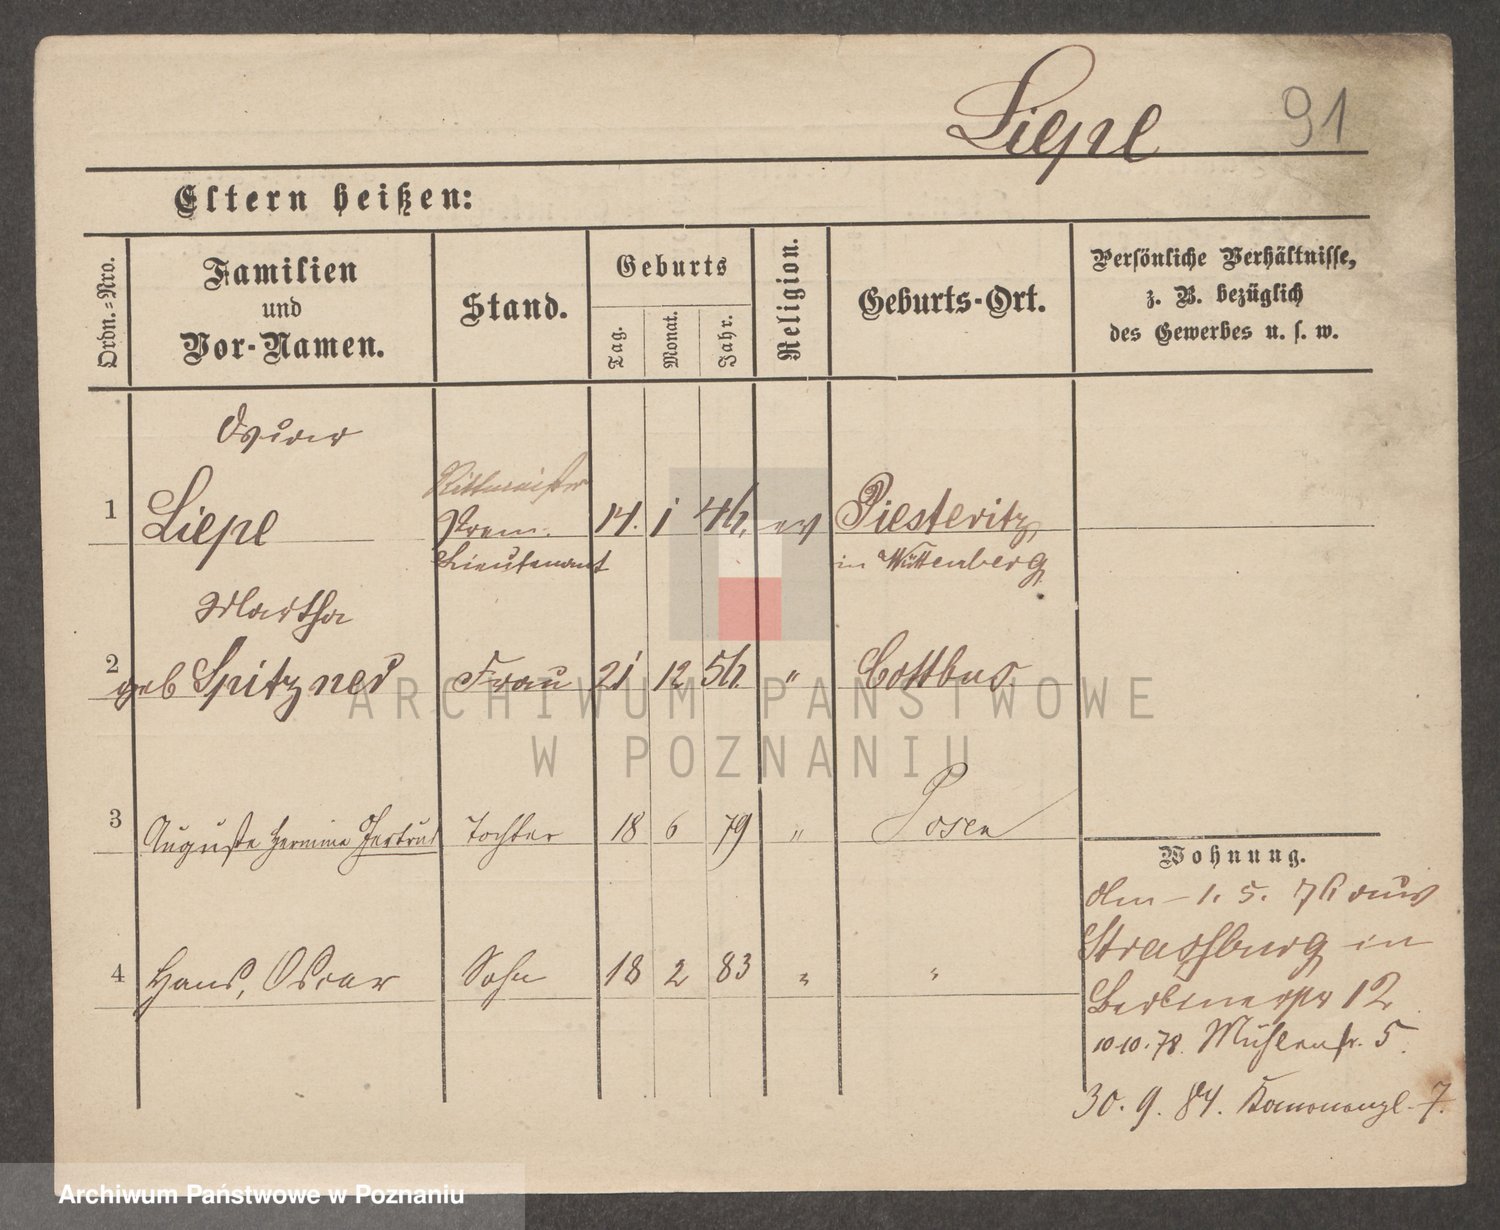 Liepe 91
Eltern heißen:
Ordn.=Nro.
Familien
und
Vor-Namen.
Stand.
Geburts
Tag.
Monat.
Jahr.
Religion.
Geburts-Ort.
Persönliche Verhältnisse,
z. B. bezüglich
des Gewerbes u. s. w.
Oscar
1 Liepe Rittmeister 14. 1 46. ev Piesteritz
Prem.
Lieutenant in Wittenberg
Martha
2 geb Spitzner Frau 21 12 56. " Cottbus.
3 Auguste Hermine Gertrud Tochter 18 6 79 " Posen
4 Hans, Oscar Sohn 18 2 83 " "
Wohnung.
1. 5. 76 aus
Strassburg in
Berlinerstr 12
10.10.78. Mühlenstr. 5.
30. 9. 84. 7.
ARCHIWUM PAŃSTWOWE
W POZNANIU
Archiwum Państwowe w Poznaniu